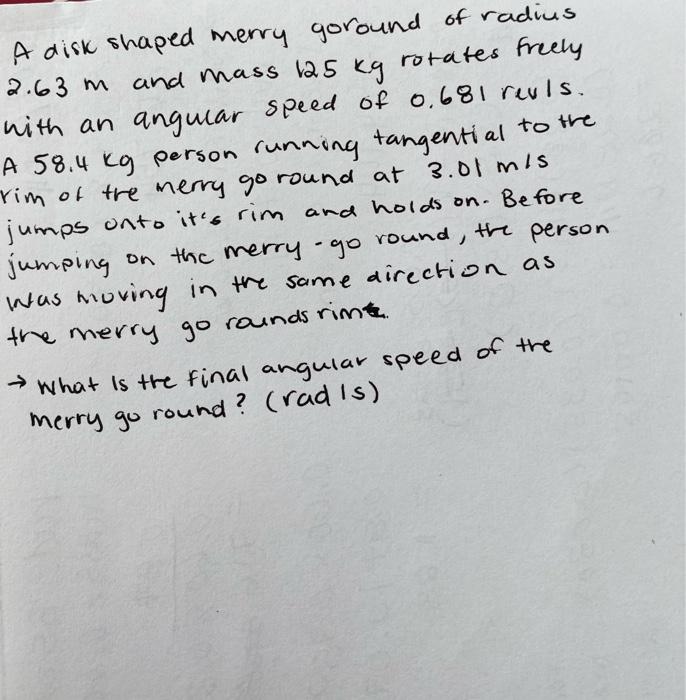 A disk shaped merry goround of radius
2.63 m and mass 125 kg rotates freely
with an angular speed of 0.681 rev/s.
A 58.4 kg person running tangential to the
rim of the merry go round at 3.01 m/s
jumps onto it's rim and holds on. Before
jumping on the merry-go round, the person
was moving in the same direction as
the merry go rounds rim.
→ What is the final angular speed of the
merry go round? (rad/s)